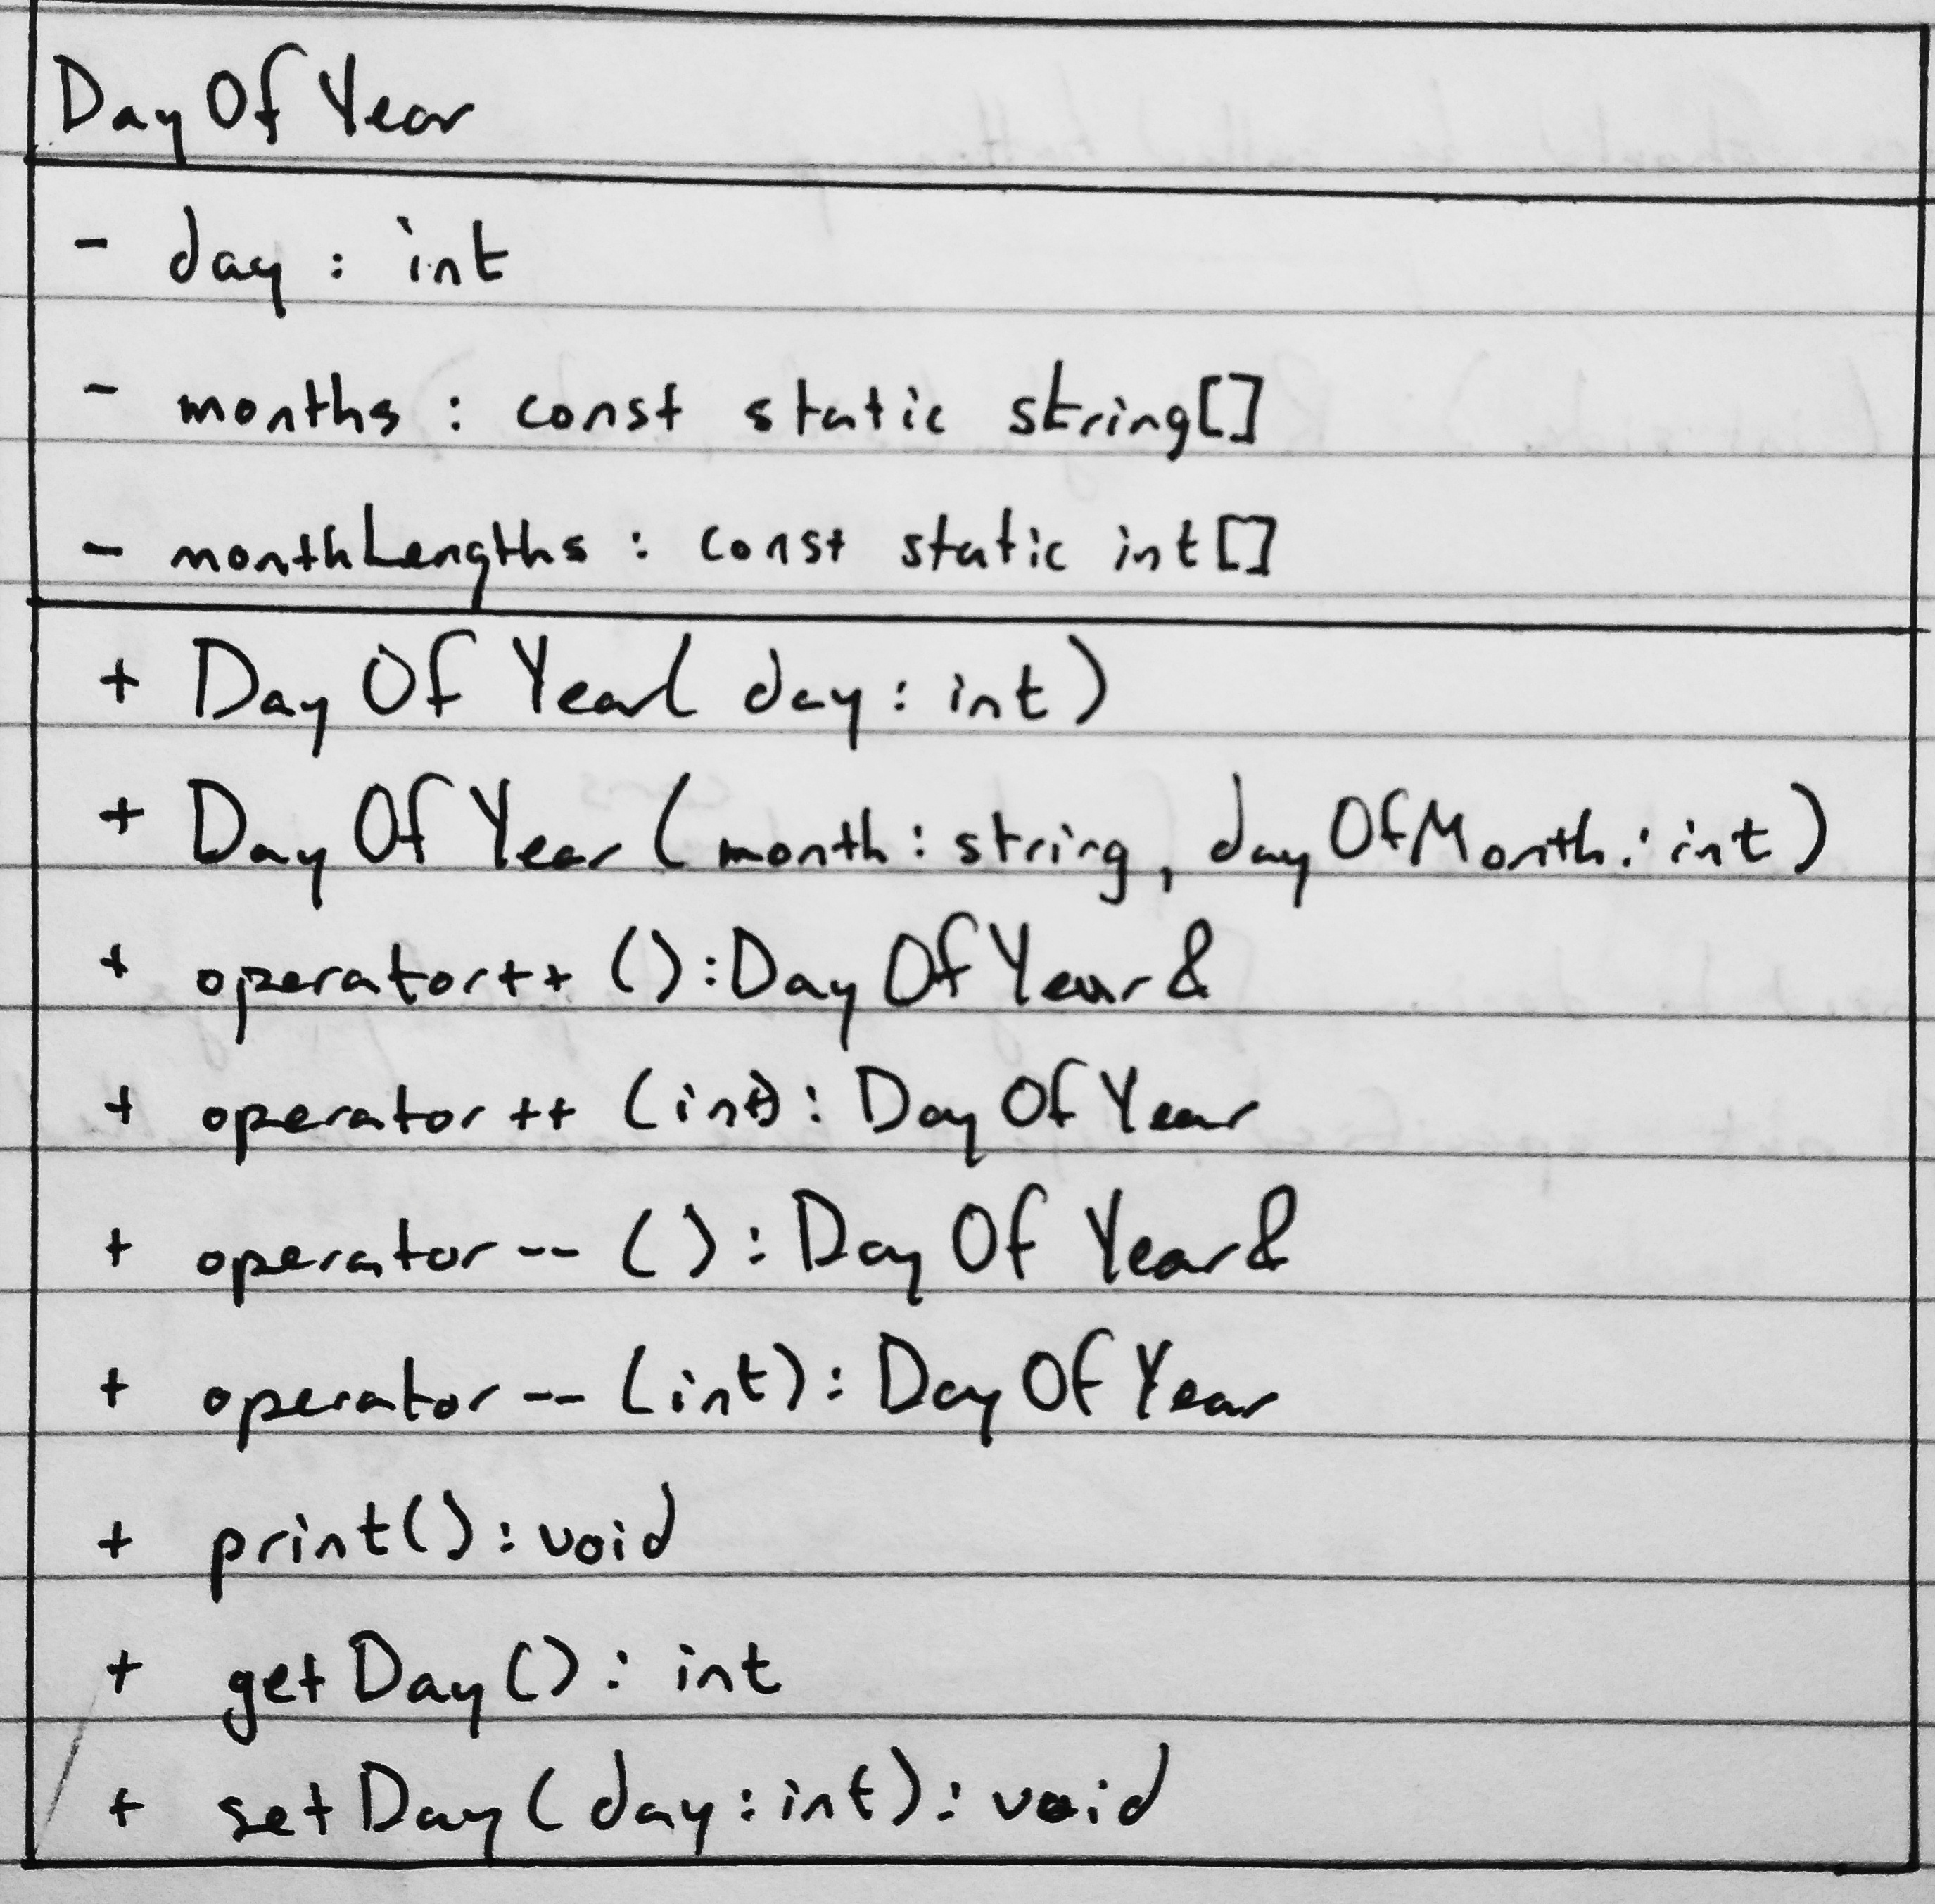 DayOfYear
- day : int
- months : const static string[]
- monthLengths : const static int[]
+ DayOfYear( day : int )
+ DayOfYear ( month : string, dayOfMonth : int )
+ operator++ () : DayOfYear &
+ operator++ (int) : DayOfYear
+ operator-- () : DayOfYear &
+ operator-- (int) : DayOfYear
+ print() : void
+ getDay() : int
+ setDay( day : int ) : void